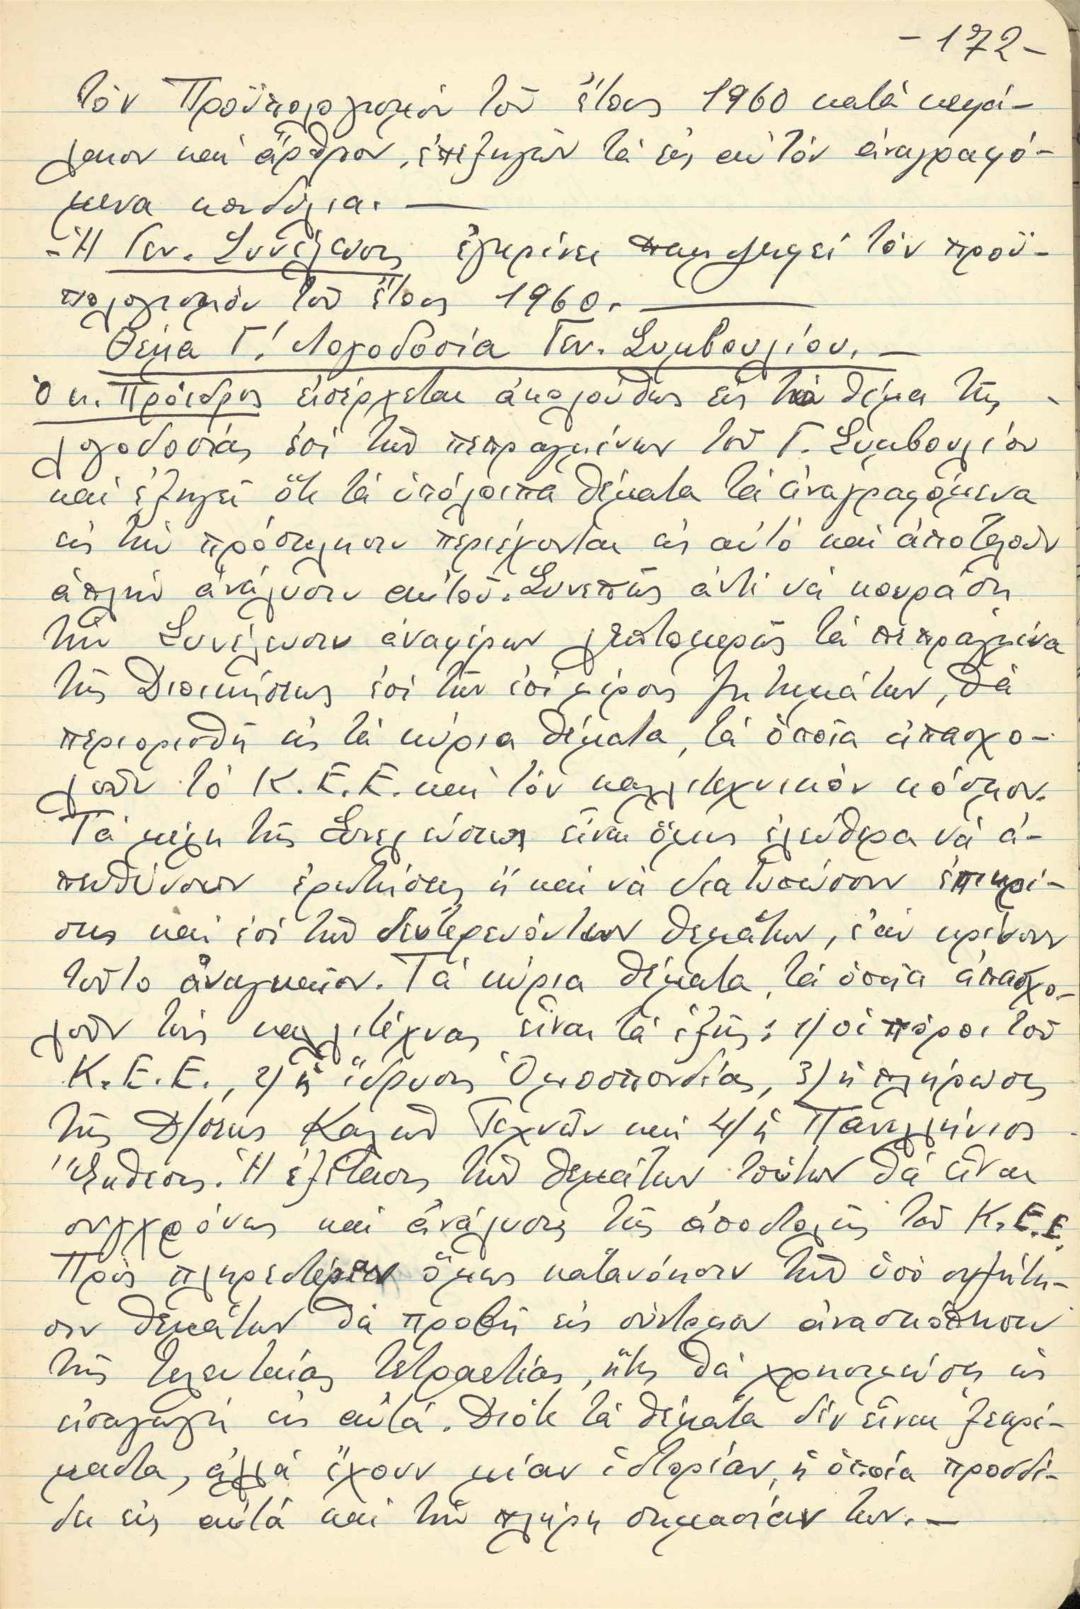 -172-
τόν Προϋπολογισμόν τοῦ ἔτους 1960 κατά κεφά-
λαιον καί ἄρθρον, ἐπεξηγῶν τά εἰς αὐτόν ἀναγραφό-
μενα κονδύλια. —
-Ἡ Γεν. Συνέλευσις ἐγκρίνει παμψηφεί τόν προϋ-
πολογισμόν τοῦ ἔτους 1960. —
Θέμα Γ! Λογοδοσία Γεν. Συμβουλίου. —
Ὁ κ. Πρόεδρος εἰσέρχεται ἀκολούθως εἰς τό θέμα τῆς
λογοδοσίας ἐπί τῶν πεπραγμένων τοῦ Γ. Συμβουλίου
καί ἐξηγεῖ ὅτι τά ὑπόλοιπα θέματα τά ἀναγραφόμενα
εἰς τήν πρόσκλησιν περιέχονται εἰς αὐτό καί ἀποτελοῦν
ἁπλήν ἀνάλυσιν αὐτοῦ. Συνεπῶς ἀντί νά κουράσῃ
τήν Συνέλευσιν ἀναφέρων λεπτομερῶς τά πεπραγμένα
τῆς Διοικήσεως ἐπί τῶν ἐπί μέρους ζητημάτων, θά
περιορισθῇ εἰς τά κύρια θέματα, τά ὁποῖα ἀπασχο-
λοῦν τό Κ.Ε.Ε. καί τόν καλλιτεχνικόν κόσμον.
Τά μέλη τῆς Συνελεύσεως εἶναι ὅμως ἐλεύθερα νά ἀ-
πευθύνουν ἐρωτήσεις ἤ καί νά διατυπώσουν ἐπικρί-
σεις καί ἐπί τῶν δευτερευόντων θεμάτων, ἐάν κρίνουν
τοῦτο ἀναγκαῖον. Τά κύρια θέματα, τά ὁποῖα ἀπασχο-
λοῦν τούς καλλιτέχνας εἶναι τά ἑξῆς: 1/ οἱ πόροι τοῦ
Κ.Ε.Ε., 2/ ἡ ἵδρυσις Ὁμοσπονδίας, 3/ ἡ πλήρωσις
τῆς Δ/σεως Καλῶν Τεχνῶν καί 4/ ἡ Πανελλήνιος
Ἔκθεσις. Ἡ ἐξέτασις τῶν θεμάτων τούτων θά εἶναι
συγχρόνως καί ἀνάλυσις τῆς ἀποστολῆς τοῦ Κ.Ε.Ε.
Πρός πληρεστέραν ὅμως κατανόησιν τῶν ὑπό συζήτη-
σιν θεμάτων θά προβῇ εἰς σύντομον ἀνασκόπησιν
τῆς τελευταίας τετραετίας, ἥτις θά χρησιμεύσῃ ὡς
εἰσαγωγή εἰς αὐτά. Διότι τά θέματα δέν εἶναι ξεκρέ-
μαστα, ἀλλά ἔχουν μίαν ἱστορίαν, ἡ ὁποία προσδί-
δει εἰς αὐτά καί τήν πλήρη σημασίαν των. —